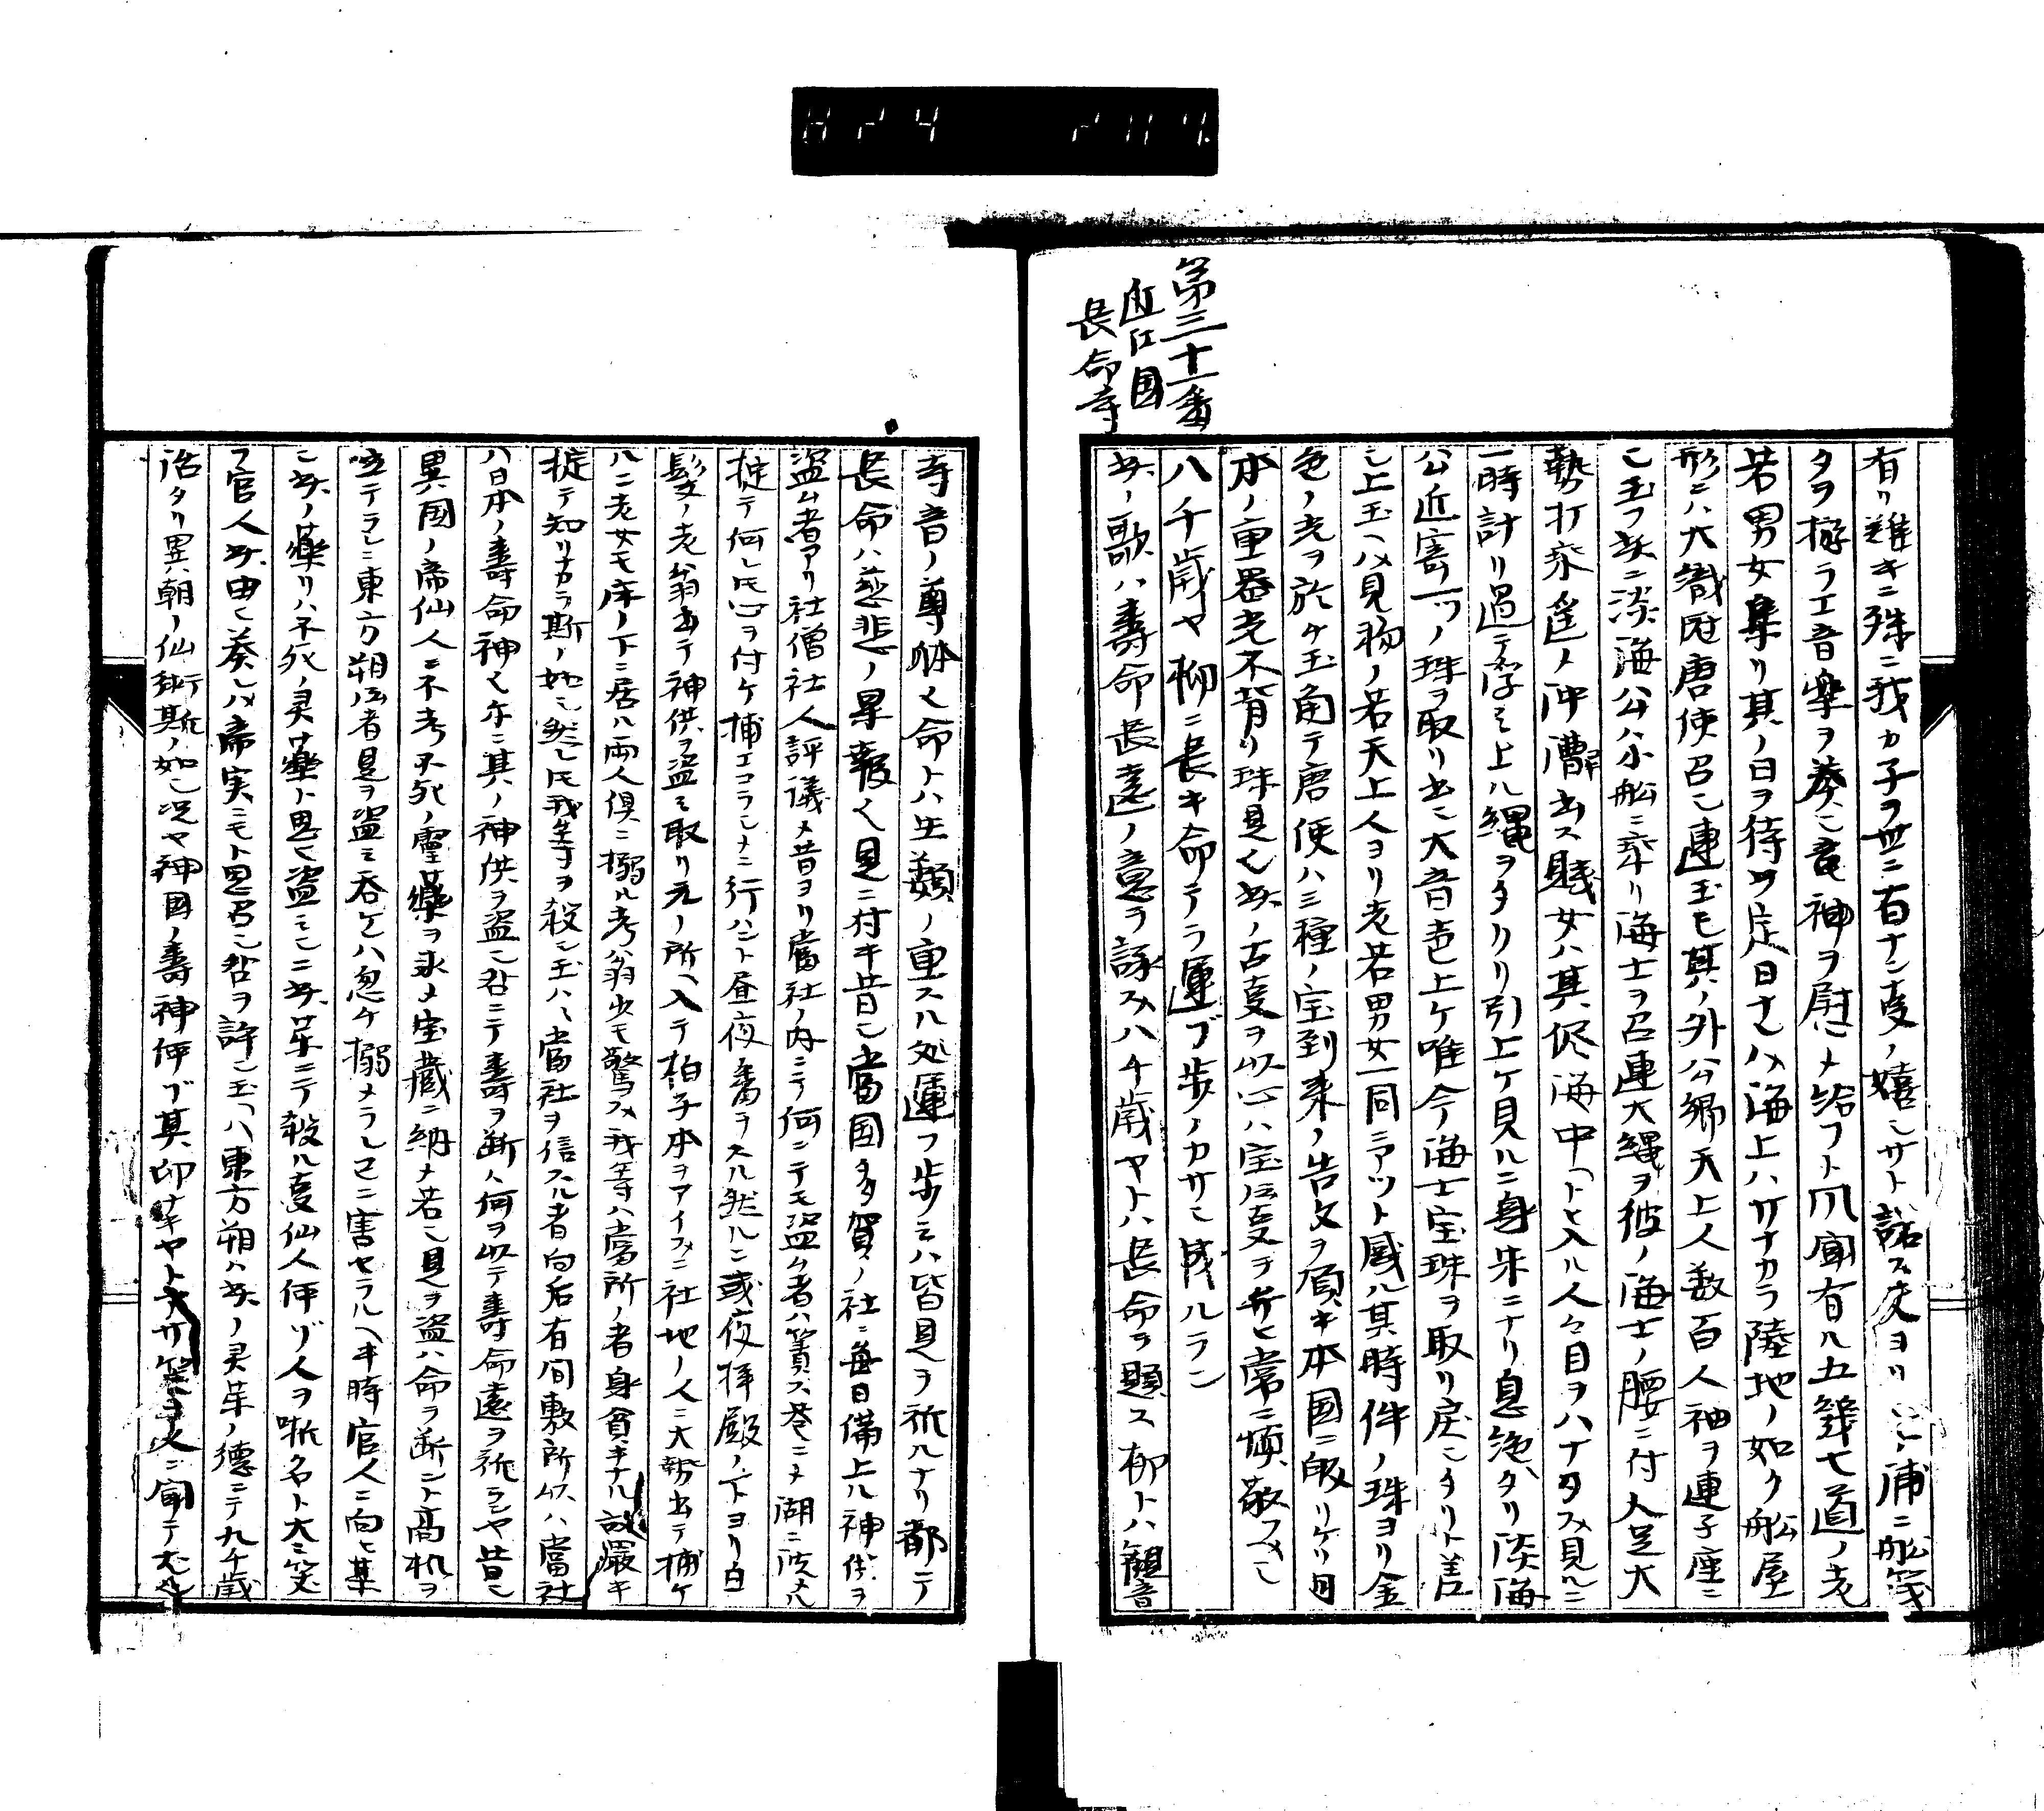 有リ難キニ殊ニ我カ子ヲ世ニ有ナン夏ノ嬉シサト諾ス夫ヨリ 浦ニ舩ヲ
タヲ揃ラエ音楽ヲ奏シ竜神ヲ慰シメ給フト風聞有ル五畿七道ノ老
若男女集リ其ノ日ヲ待ツ定日ナレハ海上ハサナカラ陸地ノ如ク舩屋
形ニハ大織冠唐使召シ連玉モ其ノ外公卿天上人数百人袖ヲ連子座ニ
シ玉フ玆ニ淡海公ハ小舩ニ乗リ海士ヲ召連大縄ヲ彼ノ海士ノ腰ニ付人足大
勢打乗遥ノ沖漕出ス賤女ハ其侭海中ヘト入ル人々目ヲハナタス見ルニ
一時計リ過テ浮ミ上ル縄ヲタクリ引上ケ見ルニ身朱ニナリ息絶タリ淡海
公近寄一ツノ珠ヲ取リ出シ大音声上ケ唯今海士宝珠ヲ取リ戻シタリト差
シ上玉ヘハ見物ノ若天上人ヨリ老若男女一同ニアツト感ル其時件ノ珠ヨリ金
色ノ光ヲ放ケ玉角テ唐使ハ三種ノ宝到来ノ告文ヲ頂キ本国ニ皈リケリ日
本ノ重器光不背リ珠是也玆ノ古夏ヲ以心ハ宝伝夏ヲ弁ヒ常ニ慎敬スヘシ
第三十一番
近江国
長命寺
八千歳ヤ柳ニ長キ命テラ運ブ歩ノカサシ成ルラン
玆ノ歌ハ寿命長遠ノ意ヲ詠ス八千歳ヤトハ長命ヲ題ス柳トハ観音
寺音ノ尊体也命トハ生類ノ重スル処運フ歩ミハ皆是ヲ祈ルナリ都テ
長命ハ慈悲ノ果報也是ニ付キ昔シ当国多賀ノ社ニ毎日備上ル神供ヲ
盗ム者アリ社僧社人評議メ昔ヨリ当社ノ内ニテ何ニテモ盗ム者ハ簀ス巻ニメ湖ニ沈メル
掟テ何レ氏心ヲ付ケ捕エコラシメニ行ハント昼夜番ヲスル然ルニ或夜拝殿ノ下ヨリ白
髪ノ老翁出テ神供ヲ盗ミ取リ元ノ所ヘ入テ柏子木ヲアイスニ社地ノ人ニ大勢出テ捕ケ
ハニ老女モ床ノ下ニ居ル両人倶ニ搦ル考翁少モ驚ス我等ハ当所ノ者身貧キナル故厳キ
掟テ知リナカラ斯ノ如シ然レ氏我等ヲ殺シ玉ハヽ当社ヲ信スル者向后有間敷所以ハ当社
ハ日本ノ寿命神也尓ニ其ノ神供ヲ盗シ咎ニテ寿ヲ断ハ何ヲ以テ寿命遠ヲ祈ランヤ昔シ
異国ノ帝仙人ニ不考不死ノ霊薬ヲ求メ宝蔵ニ納メ若シ是ヲ盗ハ命ヲ断ント高札ヲ
立テラシニ東方朔云者是ヲ盗ミ呑ケハ忽ケ搦メラレ已ニ害セラルヘキ時官人ニ向ヒ某
シ玆ノ薬リハ不死ノ灵薬ト思ヒ盗ミシニ玆ノ羊ニテ殺ル夏仙人伴ゾ人ヲ欺クト大ニ笑
フ官人玆由シ奏レハ帝実ニモト思召シ咎ヲ許シ玉ヘハ東方朔ハ玆ノ灵羊ノ徳ニテ九千歳
活タリ異朝ノ仙術斯ノ如シ况ヤ神国ノ寿神伴ブ其印ナキヤト ニ聞テ